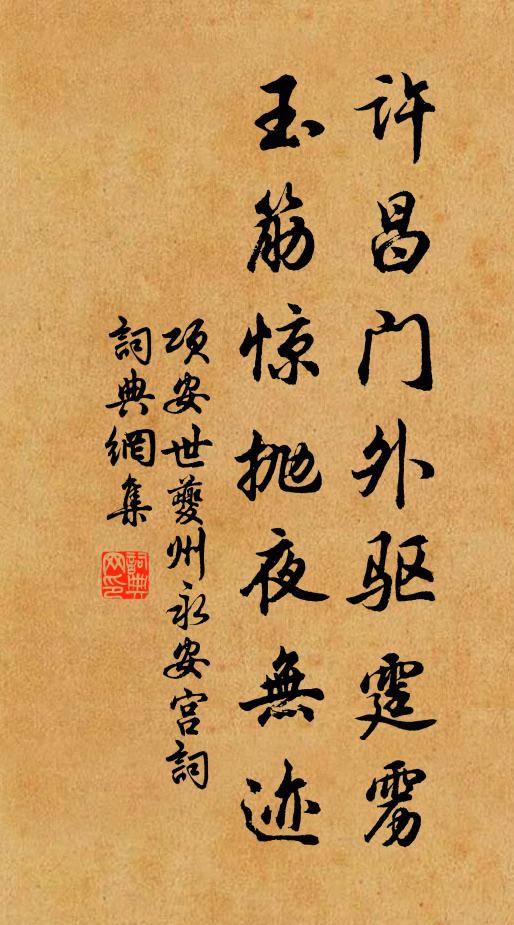 许昌门外驱霆雳
玉筋惊抛夜無迹
项安世夔州永安宫詞
詞典網集
詞典
网印